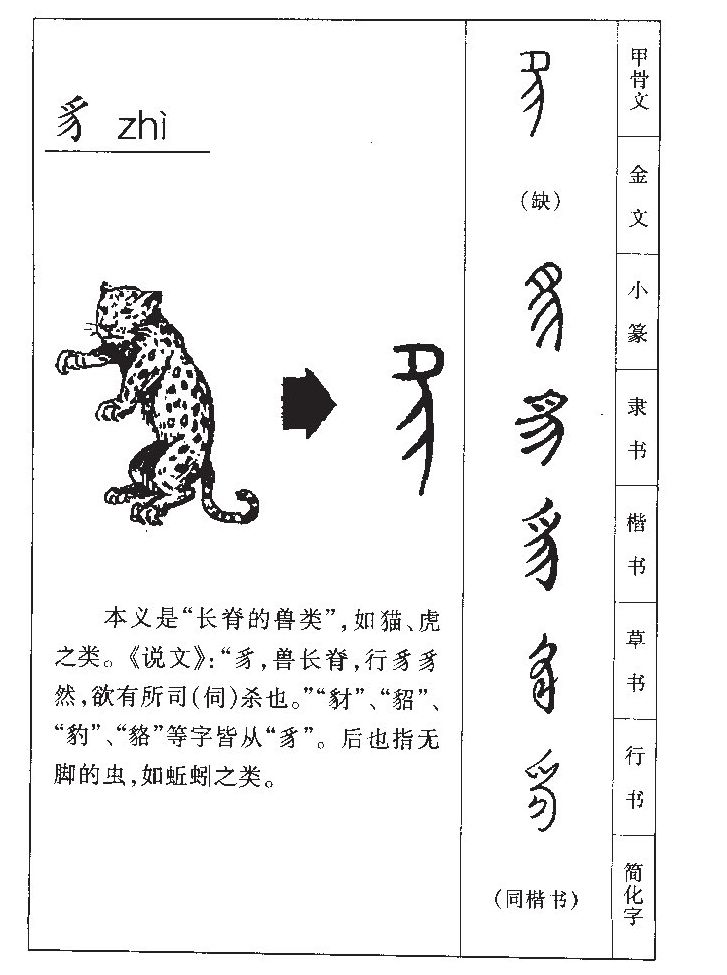 豸 zhì
本义是“长脊的兽类”,如猫、虎
之类。《说文》:“豸,兽长脊,行豸豸
然,欲有所司(伺)杀也。”“豺”、“貂”、
“豹”、“貉”等字皆从“豸”。后也指无
脚的虫,如蚯蚓之类。
豸 甲骨文
(缺) 金文
豸 小篆
豸 隶书
豸 楷书
豸 草书
豸 行书
(同楷书) 简化字